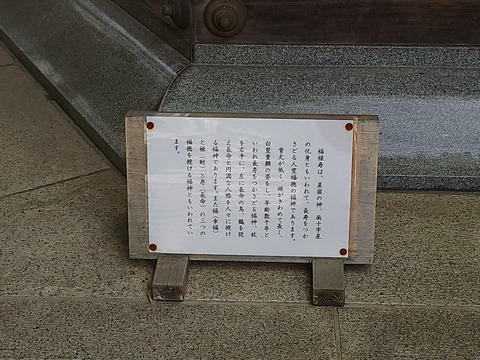 福禄寿は、星宿の神、南十字星
の化身ともいわれて、長寿をつか
さどる人望福徳の福神であります。
背丈が低く頭がきわめて長く、
白髪童顔の姿をし、年齢数千年と
いわれ長寿をつかさどる福神、杖
を右手に、左に長命の鳥、鶴を従
え長命と円満な人格を人々に授け
る福神であります。また福(幸福)
と禄(財)と寿(長命)の三つの
福徳を授ける福神ともいわれてい
ます。